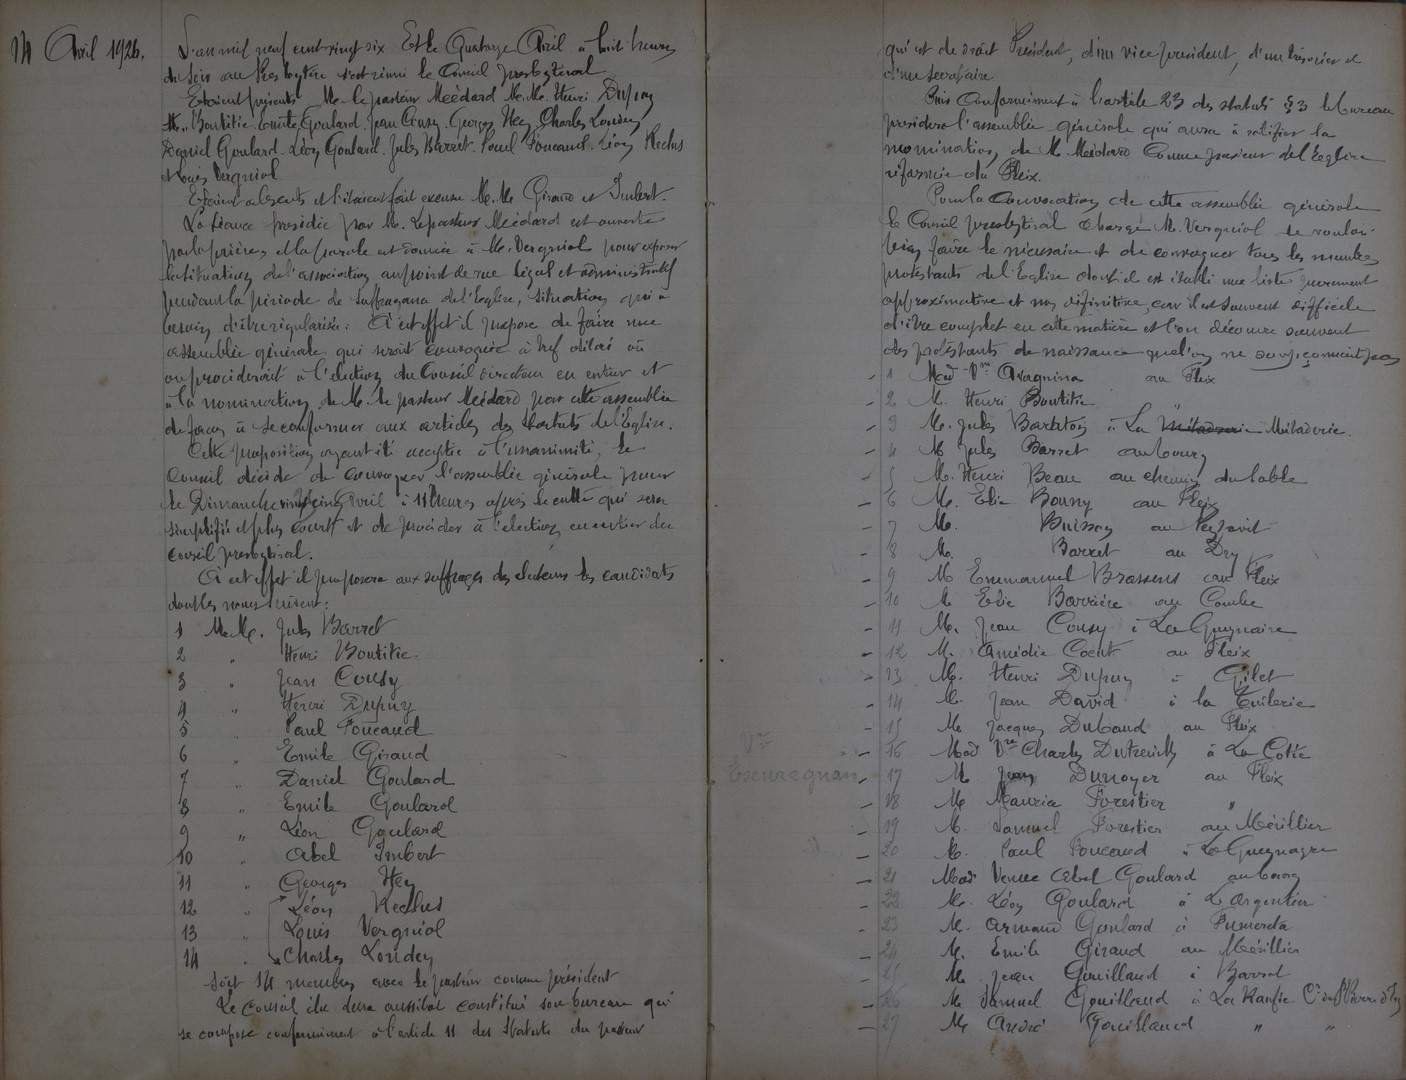 14 Avril 1926.
L'an mil neuf cent vingt six Et le Quatorze Avril à huit heures
du soir au Presbytère s'est réuni le Conseil presbytéral
Etaient présents M. le pasteur Meédard M.M. Henri Dupuy
M.. Boutitie Emile Goulard. Jean Cousy. Georges Hey Charles Londey
Daniel Goulard. Léon Goulard. Jules Barret. Paul Foucaud. Léon Reclus
et Louis Vergniol
Etaient absents et s'étaient fait excuser M.M. Giraud et Imbert.
La séance présidée par M. Le pasteur Meédard est ouverte
par la prière, et la parole est donnée à M. Vergniol pour exposer
la situation de l'association au point de vue légal et administratif
pendant la période de suffragance de l'Eglise, situation qui a
besoin d'être régularisée: A cet effet il propose de faire une
assemblée générale qui serait convoquée à bref délai où
on procéderait à l'élection du Conseil directeur en entier et
à la nomination de M. le pasteur Meédard par cette assemblée
de façon à se conformer aux articles des Statuts de l'Eglise.
Cette proposition ayant été acceptée à l'unanimité, le
Conseil décide de convoquer l'assemblée générale pour
le Dimanche Avril à 11 heures après le culte qui sera
simplifié et plus court et de procéder à l'élection en entier du
Conseil presbytéral.
A cet effet il proposera aux suffrages des électeurs les candidats
dont les noms suivent:
1 M.M. Jules Barret
2 " Henri Boutitie
3 " Jean Cousy
4 " Henri Dupuy
5 " Paul Foucaud
6 " Emile Giraud
7 " Daniel Goulard
8 " Emile Goulard
9 " Léon Goulard
10 " Abel Imbert
11 " Georges Hey
12 " Léon Reclus
13 " Louis Vergniol
14 " Charles Londey
Soit 14 membres avec le pasteur comme président
Le Conseil élu devra aussitôt constituer son bureau qui
se compose conformément à l'article 11 des Statuts du pasteur
qui est de droit Président, d'un vice président, d'un trésorier et
d'un secrétaire
Puis Conformément à l'article 23 des statuts § 3 le bureau
présidera l'assemblée générale qui aura à ratifier la
nomination de M. Meédard Comme pasteur de l'Eglise
réformée du Fleix.
Pour la Convocation de cette assemblée générale
le Conseil presbytéral charge M. Vergniol de vouloir
bien faire le nécessaire et de convoquer tous les membres
protestants de l'Eglise dont il est établi une liste purement
approximative et non définitive, car il est souvent difficile
d'être complet en cette matière et l'on découvre souvent
des protestants de naissance que l'on ne soupçonnait pas
- 1 Mad Vve au Fleix
- 2 M. Henri Boutitie "
- 3 M. Jules à La Mitaderie.
- 4 M Jules Barret au bourg
- 5 M. Henri Beau au chemin du sable
- 6 M. Elie au Fleix
- 7 M. Buisson au
- 8 M. Barret au Dry
- 9 M Emmanuel Brassens au Fleix
- 10 M Elie Barrière au Combe
- 11 M. Jean Cousy à La
- 12 M. Amédée au Fleix
- 13 M. Henri Dupuy à Gilet
- 14 M. Jean David à la Tuilerie
- 15 M. Jacques Dubaud au Fleix
Vve
Escuregnan
- 16 Mad Vve Charles à La Cotte
- 17 M Jean Dunoyer au Fleix
- 18 M. Maurice Forestier "
- 19 M. Samuel Forestier au Mérillier
- 20 M. Paul Foucaud à
- 21 Mad Veuve Abel Goulard au bourg
- 22 M. Léon Goulard à L'argentier
- 23 M. Armand Goulard à
- 24 M. Emile Giraud au Mérillier
- 25 M. Jean Gouillaud à Barrat
- 26 M Samuel Gouillaud à La Ranfie
- 27 M André Gouillaud " "